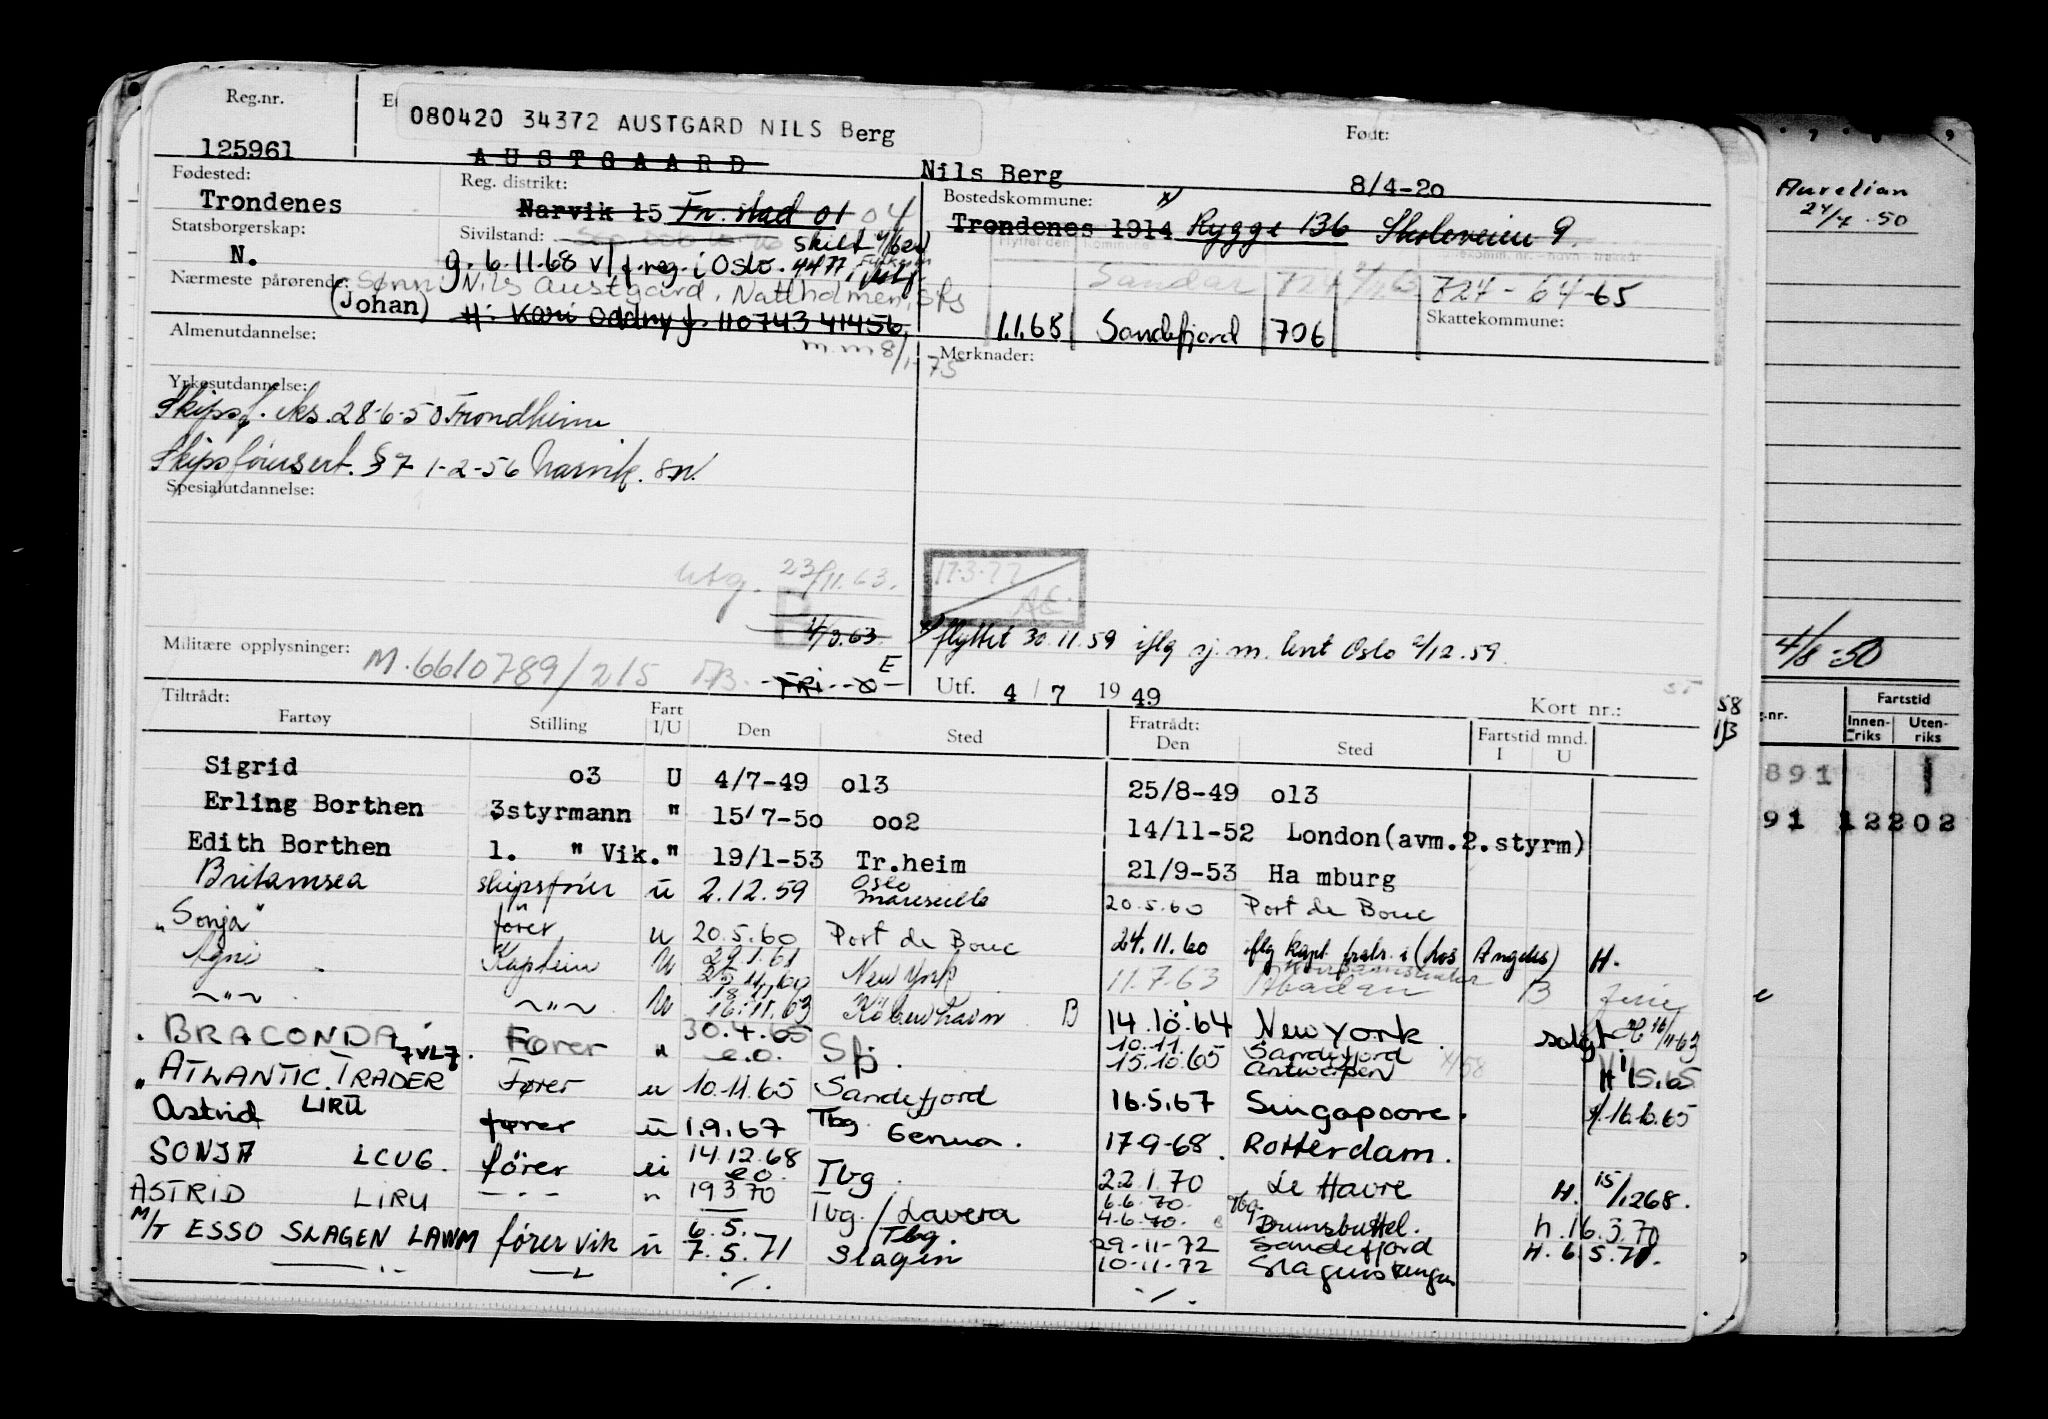 Reg.nr.
080420 34372 AUSTGARD NILS Berg
Født:
125961
AUSTGAARD
Nils Berg
8/4-20
Fødested:
Trondenes
Reg. distrikt:
Narvik 15 Fr. stad 01 04
Bostedskommune:
Trondenes 1914 Rygge 136 Skoleveien 9.
Statsborgerskap:
N.
Sivilstand:
skilt
g. 6.11.68 v/f.reg. i Oslo.
Flyttet den Kommune
Sandar 724
724 - 64-65
Nærmeste pårørende:
(Johan)
Sønn: Nils Austgård, Nattholmen, Sfj
H: Kari Oddny f. 110743 41456
1.1.68 Sandefjord 706
Skattekommune:
Almenutdannelse:
Merknader:
Yrkesutdannelse:
Skipsf. eks. 28-6-50 Trondheim
Skipsførersert. §7 1-2-56 Narvik.
Spesialutdannelse:
utg. 23/11.63.
17.3.77
flyttet 30.11.59 iflg sj.m. knt Oslo 2/12.59.
Militære opplysninger:
M.6610789/215
FRI
E
Utf. 4 / 7 19 49
Kort nr.:
Tiltrådt:
Fartøy Stilling Fart I/U Den Sted
Fratrådt: Den Sted Fartstid mnd. I U
Sigrid o3 U 4/7-49 o13 25/8-49 o13
Erling Borthen 3styrmann " 15/7-50 oo2 14/11-52 London(avm.2.styrm)
Edith Borthen 1. " Vik." 19/1-53 Tr.heim 21/9-53 Ha mburg
Britamsea skipsfører u 2.12.59 Oslo Marseille 20.5.60 Port de Bouc
"Sonja" fører u 20.5.60 Port de Bouc 24.11.60 iflg kapt. fratr. i (Los Angeles) H.
Agni Kaptein U 29.1.61 New York 11.7.63 Abadan B
—"— —"— U 16.11.63 København B 14.10.64 New York solgt
BRACONDA 7VL7. Fører " 30.4.65 e.o. Sfj. 10.11. Sandefjord
15.10.65 Antwerpen
"ATLANTIC TRADER Fører u 10.11.65 Sandefjord 16.5.67 Singapoore. 16.6.65
Astrid LIRU fører u 1.9.67 Tbg Genua. 17-9-68. Rotterdam.
SONJA LCUG. fører u 14.12.68 e.o. Tbg. 22.1.70 Le Havre H. 15/12 68.
ASTRID LIRU —"— " 19 3 70 Tbg./Lavera 6.6.70. Tbg.
4.6.70. Brunsbuttel. h. 16.3.70
M/T ESSO SLAGEN LAWM fører vik u 6.5. Tbg. 29-11-72 Sandefjord H. 6.5.71.
7.5.71 Slagen 10-11-72 Slagenstangen
Aurelian
24/4 -50
4/8-50
Fartstid
Innen-riks Uten-riks
891 1
91 12202